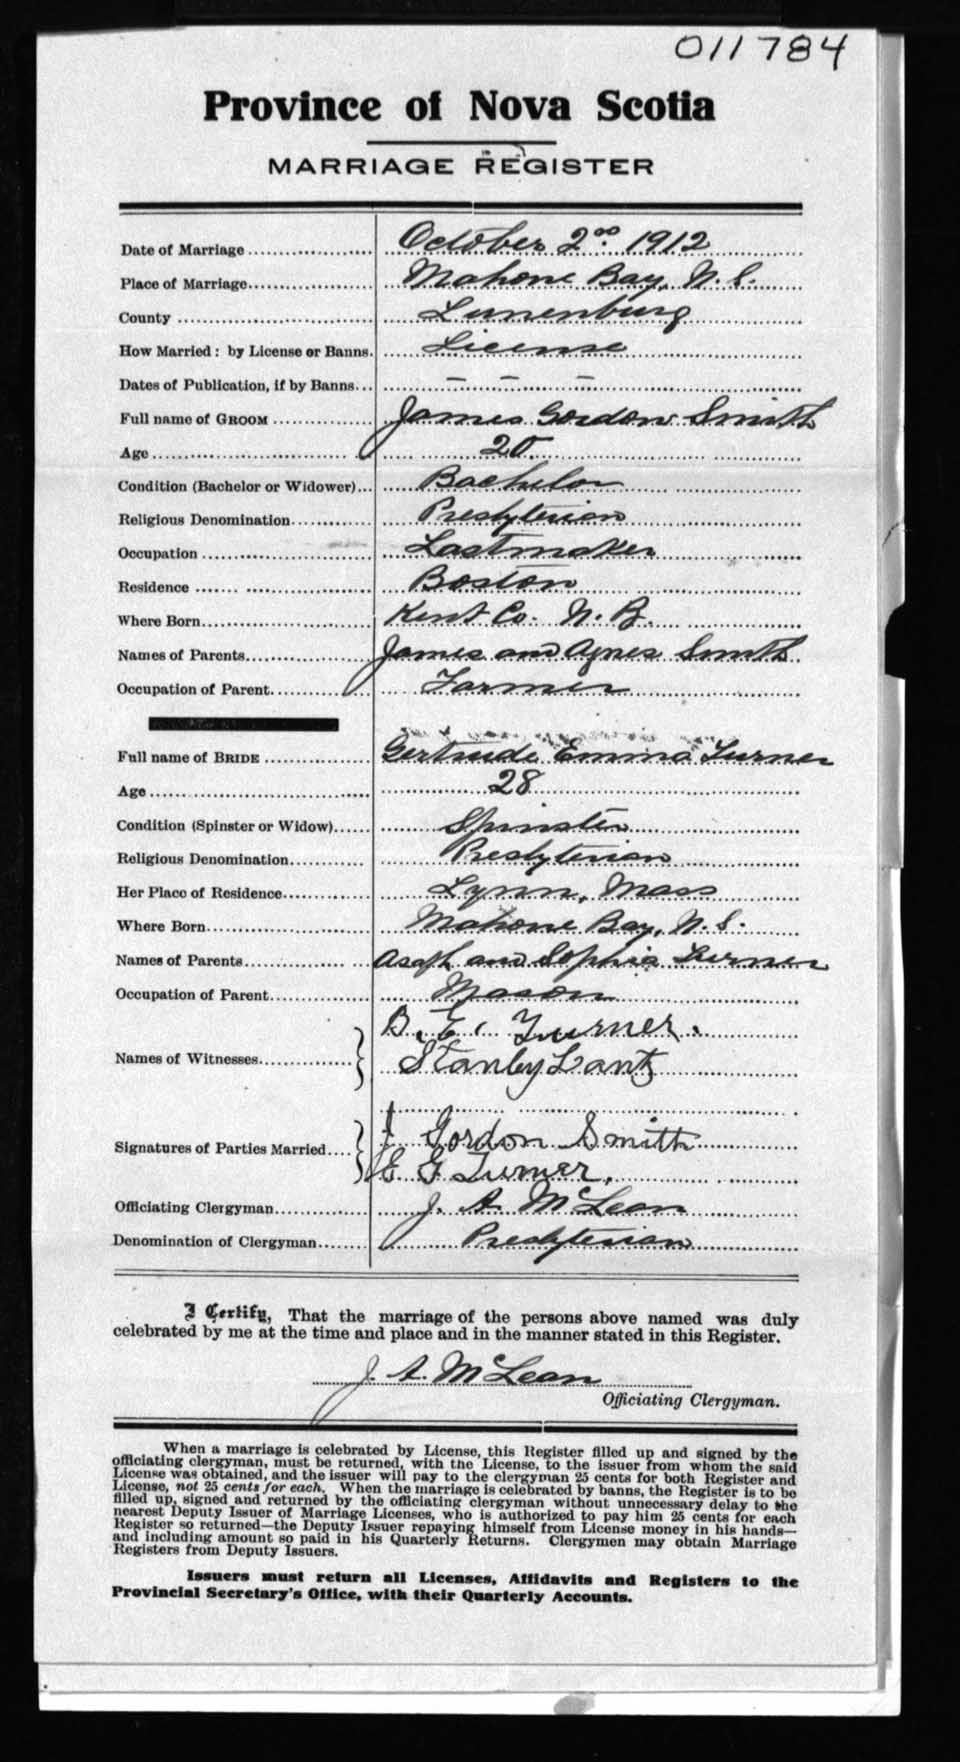 011784
Province of Nova Scotia
MARRIAGE REGISTER
Date of Marriage October 2nd. 1912
Place of Marriage Mahone Bay, N. S.
County Lunenburg
How Married: by License or Banns. License
Dates of Publication, if by Banns - - -
Full name of GROOM James Gordon Smith
Age 20
Condition (Bachelor or Widower) Bachelor
Religious Denomination Presbyterian
Occupation Lastmaker
Residence Boston
Where Born Kent Co. N. B.
Names of Parents James and Agnes Smith
Occupation of Parent Farmer
Full name of BRIDE Gertrude Emma Turner
Age 28
Condition (Spinster or Widow) Spinster
Religious Denomination Presbyterian
Her Place of Residence Lynn, Mass
Where Born Mahone Bay, N. S.
Names of Parents Asaph and Sophia Turner
Occupation of Parent Mason
B. E. Turner.
Names of Witnesses Stanley Lantz
J Gordon Smith
Signatures of Parties Married
E G Turner.
Officiating Clergyman J. A. McLean
Denomination of Clergyman Presbyterian
I Certify, That the marriage of the persons above named was duly
celebrated by me at the time and place and in the manner stated in this Register.
J. A. McLean
Officiating Clergyman.
When a marriage is celebrated by License, this Register filled up and signed by the
officiating clergyman, must be returned, with the License, to the issuer from whom the said
License was obtained, and the issuer will pay to the clergyman 25 cents for both Register and
License, not 25 cents for each. When the marriage is celebrated by banns, the Register is to be
filled up, signed and returned by the officiating clergyman without unnecessary delay to the
nearest Deputy Issuer of Marriage Licenses, who is authorized to pay him 25 cents for each
Register so returned—the Deputy Issuer repaying himself from License money in his hands—
and including amount so paid in his Quarterly Returns. Clergymen may obtain Marriage
Registers from Deputy Issuers.
Issuers must return all Licenses, Affidavits and Registers to the
Provincial Secretary's Office, with their Quarterly Accounts.